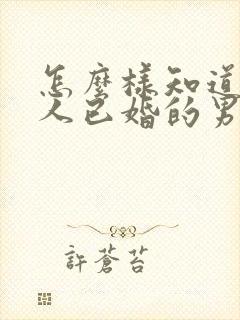 怎麼樣知道
人已婚的男
許蒼苔